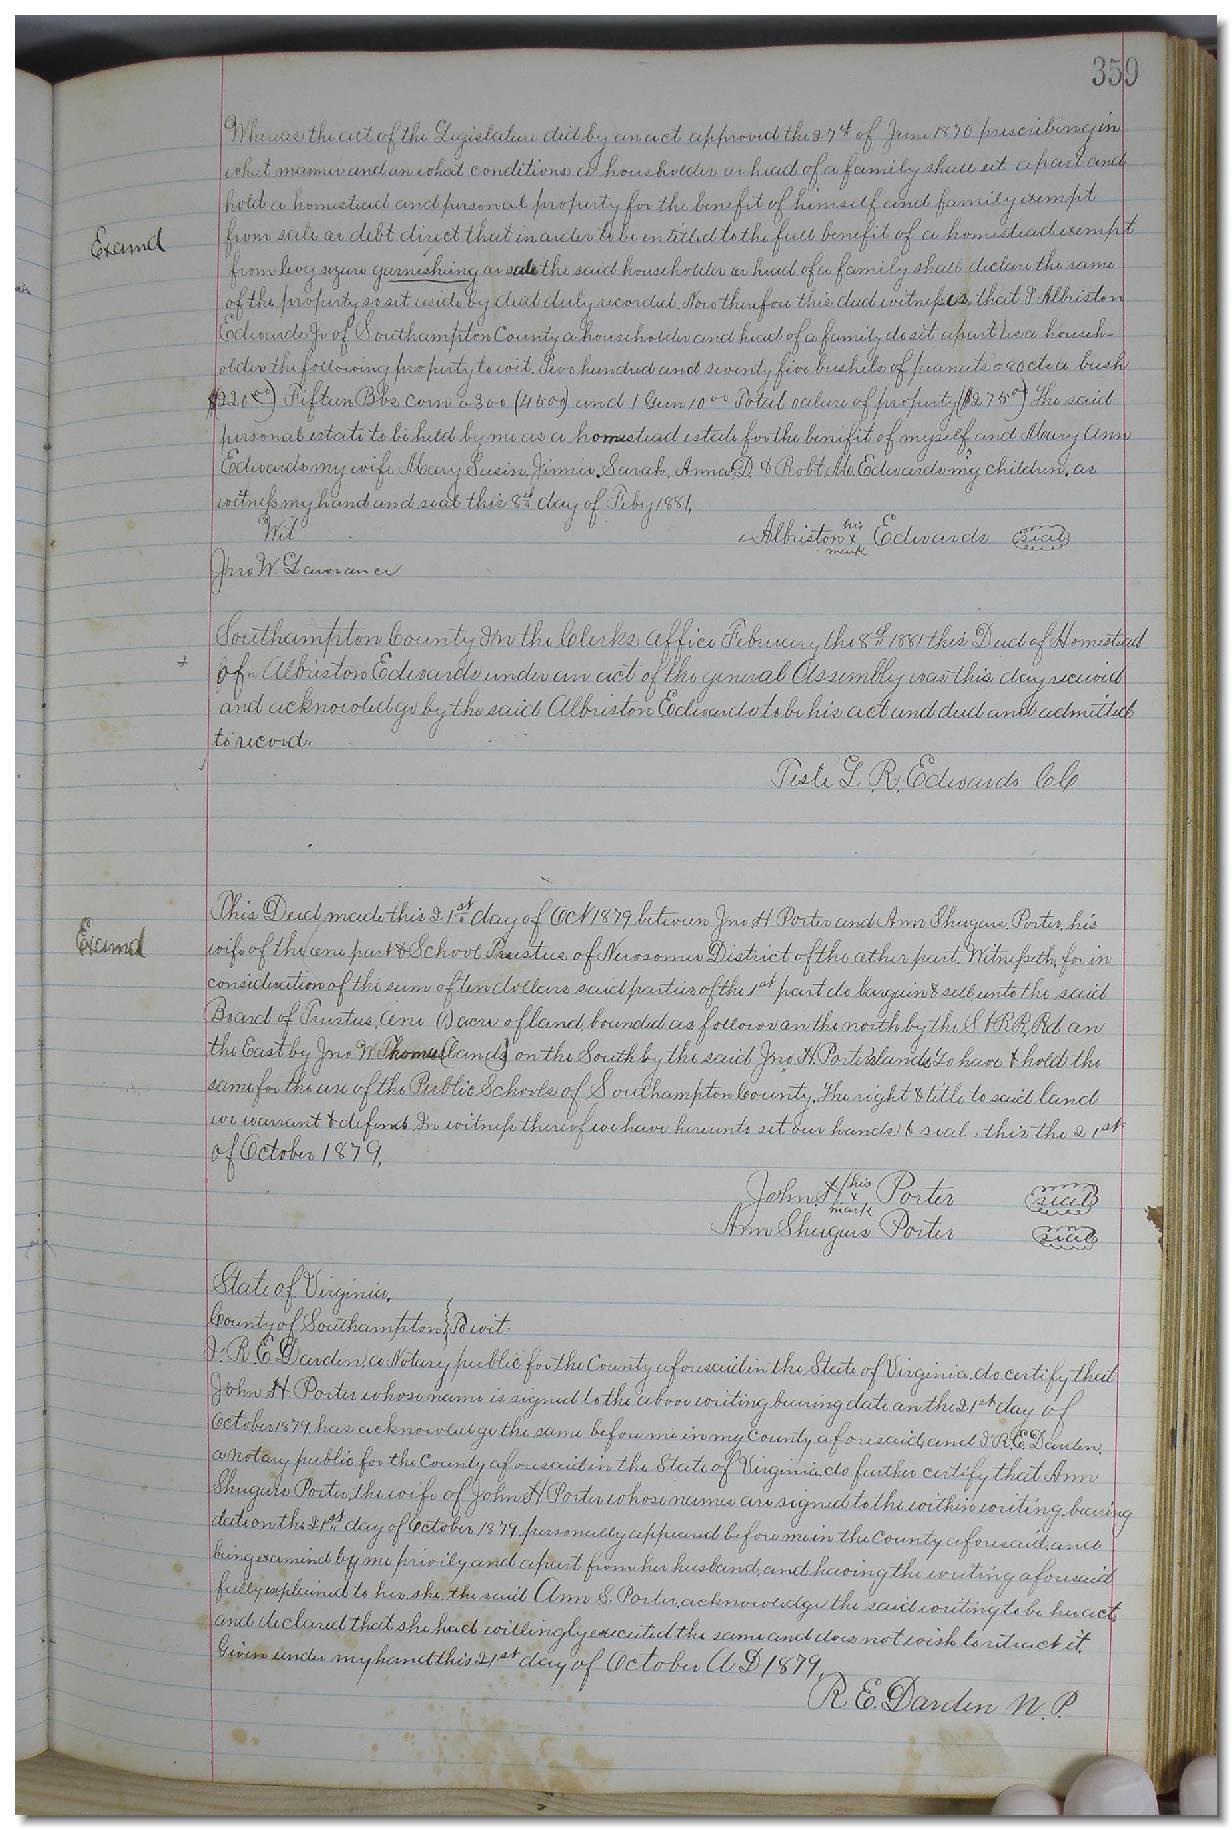 359
Whereas the act of the Legislature did by an act approved the 27th of June 1870 prescribing in
what manner and on what conditions a householder or head of a family shall set apart and
hold a homestead and personal property for the benefit of himself and family exempt
Examd
from sale or debt direct that in order to be entitled to the full benefit of a homestead exempt
from levy seizure garnisheing or sale the said householder or head of a family shall declare the same
of the property so set aside by deed duly recorded. Now therefore this deed witnesses that I Albriston
Edwards Jr of Southampton County a householder and head of a family do set apart as a househ-
older the following property to wit. Two hundred and seventy five bushels of peanuts @ 80cts a bush
$220.00) Fifteen Bbs corn @ 300 (4500) and 1 Gun 10.00 Total valure of property ($275.00) The said
personal estate to be held by me as a homestead estate for the benifit of myself and Mary Ann
Edwards my wife Mary Susin, Jimmie, Sarah, Anna D. & Robt M. Edwards my children, as
witness my hand and seal this 8th day of Feby 1881,
Wit
Albriston his x mark Edwards seal
Jno W. Lawrance
Southampton County In the Clerks office February the 8th 1881 this Deed of Homestead
of Albriston Edwards under an act of the general Assembly was this day received
and acknowledge by the said Albriston Edwards to be his act and deed and admitted
to record.
Teste L. R. Edwards CC
This Deed made this 21st day of Oct 1879 between Jno H Porter and Ann Shugurs Porter, his
Examd
wife of the one part & School Trustees of Newsomes District of the other part. Witnesseth, for in
consideration of the sum of ten dollars said parties of the 1st part do bargain & sell unto the said
Board of Trustees, one (1) acre of land, bounded as follows on the north by the S & R.R. Rd on
the East by Jno W Thomas (lands) on the South by the said Jno. H. Porters lands To have & hold the
same for the use of the Public Schools of Southampton County, The right & title to said land
we warrant & defend. In witness thereof we have hereunto set our hands & seal, this the 21st
of October 1879,
John H his x mark Porter seal
Ann Shugurs Porter seal
State of Virginia,
County of Southampton, } To wit.
I. R. E. Darden, a Notary public for the County aforesaid in the State of Virginia, do certify that
John H. Porter whose name is signed to the above writing bearing date on the 21st day of
October 1879, has acknowledge the same before me in my county aforesaid, and I R. E. Darden,
a notary public for the County aforesaid in the State of Virginia, do further certify that Ann
Shugurs Porter, the wife of John H Porter whose names are signed to the within writing, bearing
date on the 21st day of October 1879, personally appeared before me in the county aforesaid, and
being examind by me privily and apart from her husband, and having the writing aforesaid
fully explained to her, she, the said Ann S. Porter, acknowledge the said writing to be her act,
and declared that she had willingly executed the same and does not wish to retract it.
Given under my hand this 21st day of October A D 1879,
R. E. Darden N. P.